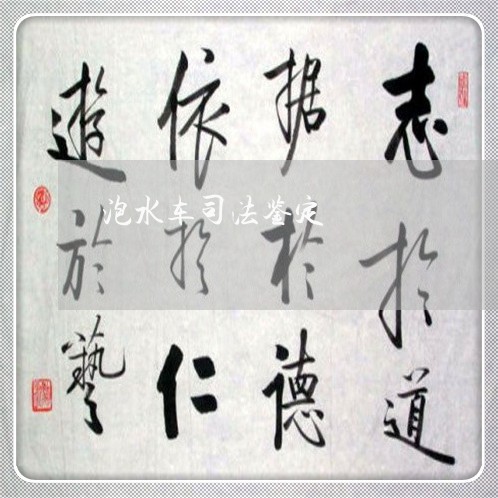 志於道
据於德
依於仁
遊於藝
泡水车司法鉴定